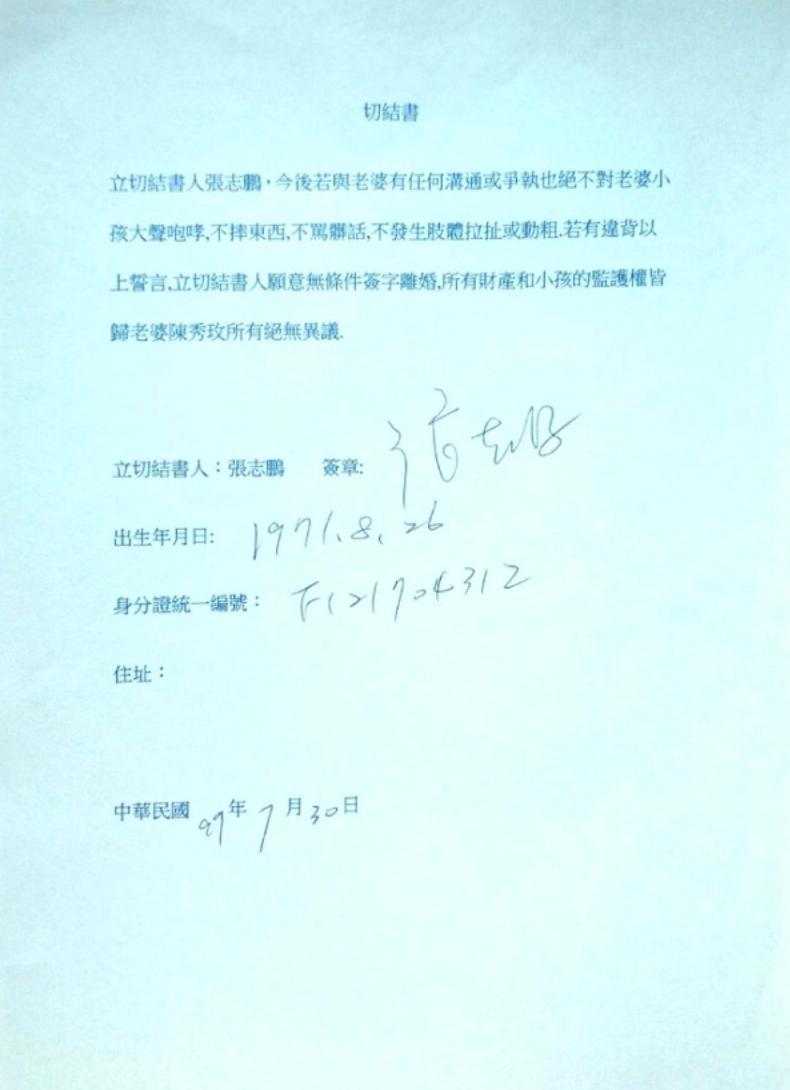 切結書
立切結書人張志鵬，今後若與老婆有任何溝通或爭執也絕不對老婆小
孩大聲咆哮,不摔東西,不罵髒話,不發生肢體拉扯或動粗.若有違背以
上誓言,立切結書人願意無條件簽字離婚,所有財產和小孩的監護權皆
歸老婆陳秀玫所有絕無異議.
立切結書人：張志鵬 簽章: 張志鵬
出生年月日: 1971.8.26
身分證統一編號： F121704312
住址：
中華民國 97年 7月30日